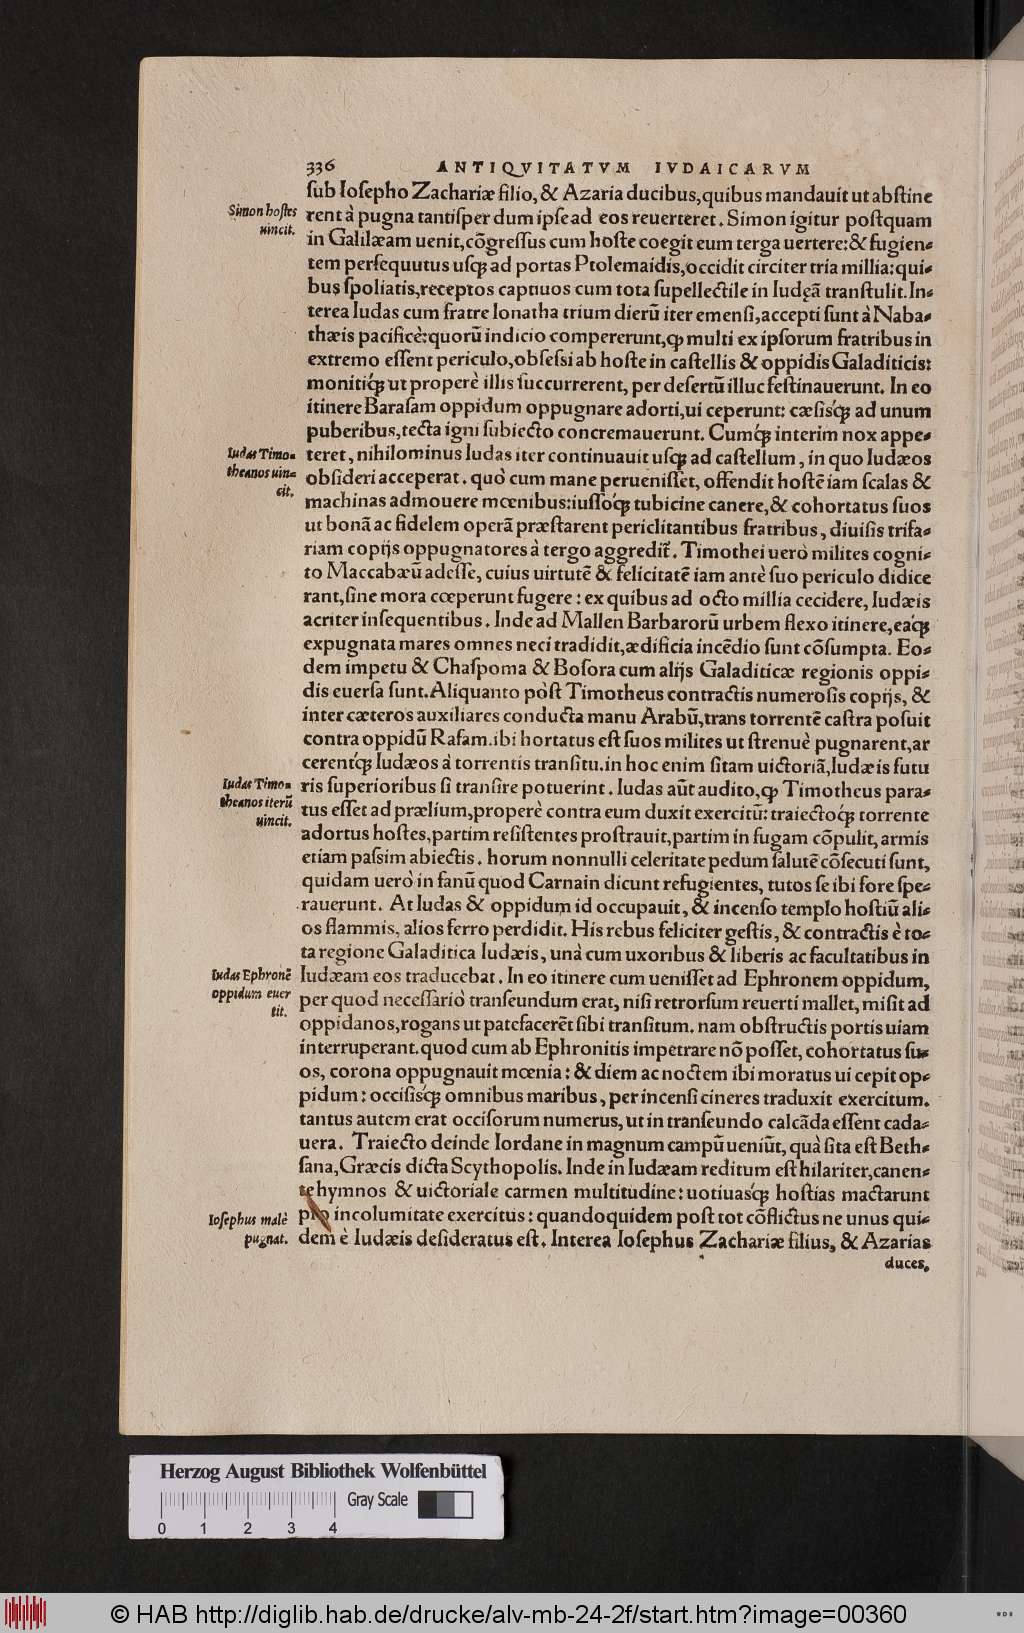 336 ANTIQVITATVM IVDAICARVM
sub Iosepho Zachariæ filio, & Azaria ducibus, quibus mandauit ut abstine
Simon hostes
uincit.
rent à pugna tantisper dum ipse ad eos reuerteret. Simon igitur postquam
in Galilæam uenit, cõgressus cum hoste coegit eum terga uertere: & fugien-
tem persequutus usq; ad portas Ptolemaidis, occidit circiter tria millia: qui-
bus spoliatis, receptos captiuos cum tota supellectile in Iudęã transtulit. In-
terea Iudas cum fratre Ionatha trium dierũ iter emensi, accepti sunt à Naba-
thæis pacificè: quorũ indicio compererunt, ꝙ multi ex ipsorum fratribus in
extremo essent periculo, obsessi ab hoste in castellis & oppidis Galaditicis:
monitiq́; ut properè illis succurrerent, per desertũ illuc festinauerunt. In eo
itinere Barasam oppidum oppugnare adorti, ui ceperunt: cæsisq́; ad unum
puberibus, tecta igni subiecto concremauerunt. Cumq́; interim nox appe-
Iudas Timo-
theanos uin-
cit.
teret, nihilominus Iudas iter continuauit usq; ad castellum, in quo Iudæos
obsideri acceperat. quò cum mane peruenisset, offendit hostẽ iam scalas &
machinas admouere mœnibus: iussoq́; tubicine canere, & cohortatus suos
ut bonã ac fidelem operã præstarent periclitantibus fratribus, diuisis trifa-
riam copijs oppugnatores à tergo aggredit̃. Timothei uerò milites cogni-
to Maccabæũ adesse, cuius uirtutẽ & felicitatẽ iam antè suo periculo didice
rant, sine mora cœperunt fugere: ex quibus ad octo millia cecidere, Iudæis
acriter insequentibus. Inde ad Mallen Barbarorũ urbem flexo itinere, eaq́;
expugnata mares omnes neci tradidit, ædificia incẽdio sunt cõsumpta. Eo-
dem impetu & Chaspoma & Bosora cum alijs Galaditicæ regionis oppi-
dis euersa sunt. Aliquanto pòst Timotheus contractis numerosis copijs, &
inter cæteros auxiliares conducta manu Arabũ, trans torrentẽ castra posuit
contra oppidũ Rafam. ibi hortatus est suos milites ut strenuè pugnarent, ar
cerentq́; Iudæos à torrentis transitu. in hoc enim sitam uictoriã, Iudæis futu
Iudas Timo-
theanos iterũ
uincit.
ris superioribus si transire potuerint. Iudas aũt audito, ꝙ Timotheus para-
tus esset ad prælium, properè contra eum duxit exercitũ: traiectoq́; torrente
adortus hostes, partim resistentes prostrauit, partim in fugam cõpulit, armis
etiam passim abiectis. horum nonnulli celeritate pedum salutẽ cõsecuti sunt,
quidam uerò in fanũ quod Carnain dicunt refugientes, tutos se ibi fore spe-
rauerunt. At Iudas & oppidum id occupauit, & incenso templo hostiũ ali-
os flammis, alios ferro perdidit. His rebus feliciter gestis, & contractis è to-
ta regione Galaditica Iudæis, unà cum uxoribus & liberis ac facultatibus in
Iudas Ephronẽ
oppidum euer
tit.
Iudæam eos traducebat. In eo itinere cum uenisset ad Ephronem oppidum,
per quod necessariò transeundum erat, nisi retrorsum reuerti mallet, misit ad
oppidanos, rogans ut patefacerẽt sibi transitum. nam obstructis portis uiam
interruperant. quod cum ab Ephronitis impetrare nõ posset, cohortatus su-
os, corona oppugnauit mœnia: & diem ac noctem ibi moratus ui cepit op-
pidum: occisisq́; omnibus maribus, per incensi cineres traduxit exercitum.
tantus autem erat occisorum numerus, ut in transeundo calcãda essent cada-
uera. Traiecto deinde Iordane in magnum campũ ueniũt, quà sita est Beth-
sana, Græcis dicta Scythopolis. Inde in Iudæam reditum est hilariter, canen-
te hymnos & uictoriale carmen multitudine: uotiuasq́; hostias mactarunt
Iosephus malè
pugnat.
pro incolumitate exercitus: quandoquidem post tot cõflictus ne unus qui-
dem è Iudæis desideratus est. Interea Iosephus Zachariæ filius, & Azarias
duces,
Herzog August Bibliothek Wolfenbüttel
Gray Scale
0 1 2 3 4
© HAB http://diglib.hab.de/drucke/alv-mb-24-2f/start.htm?image=00360